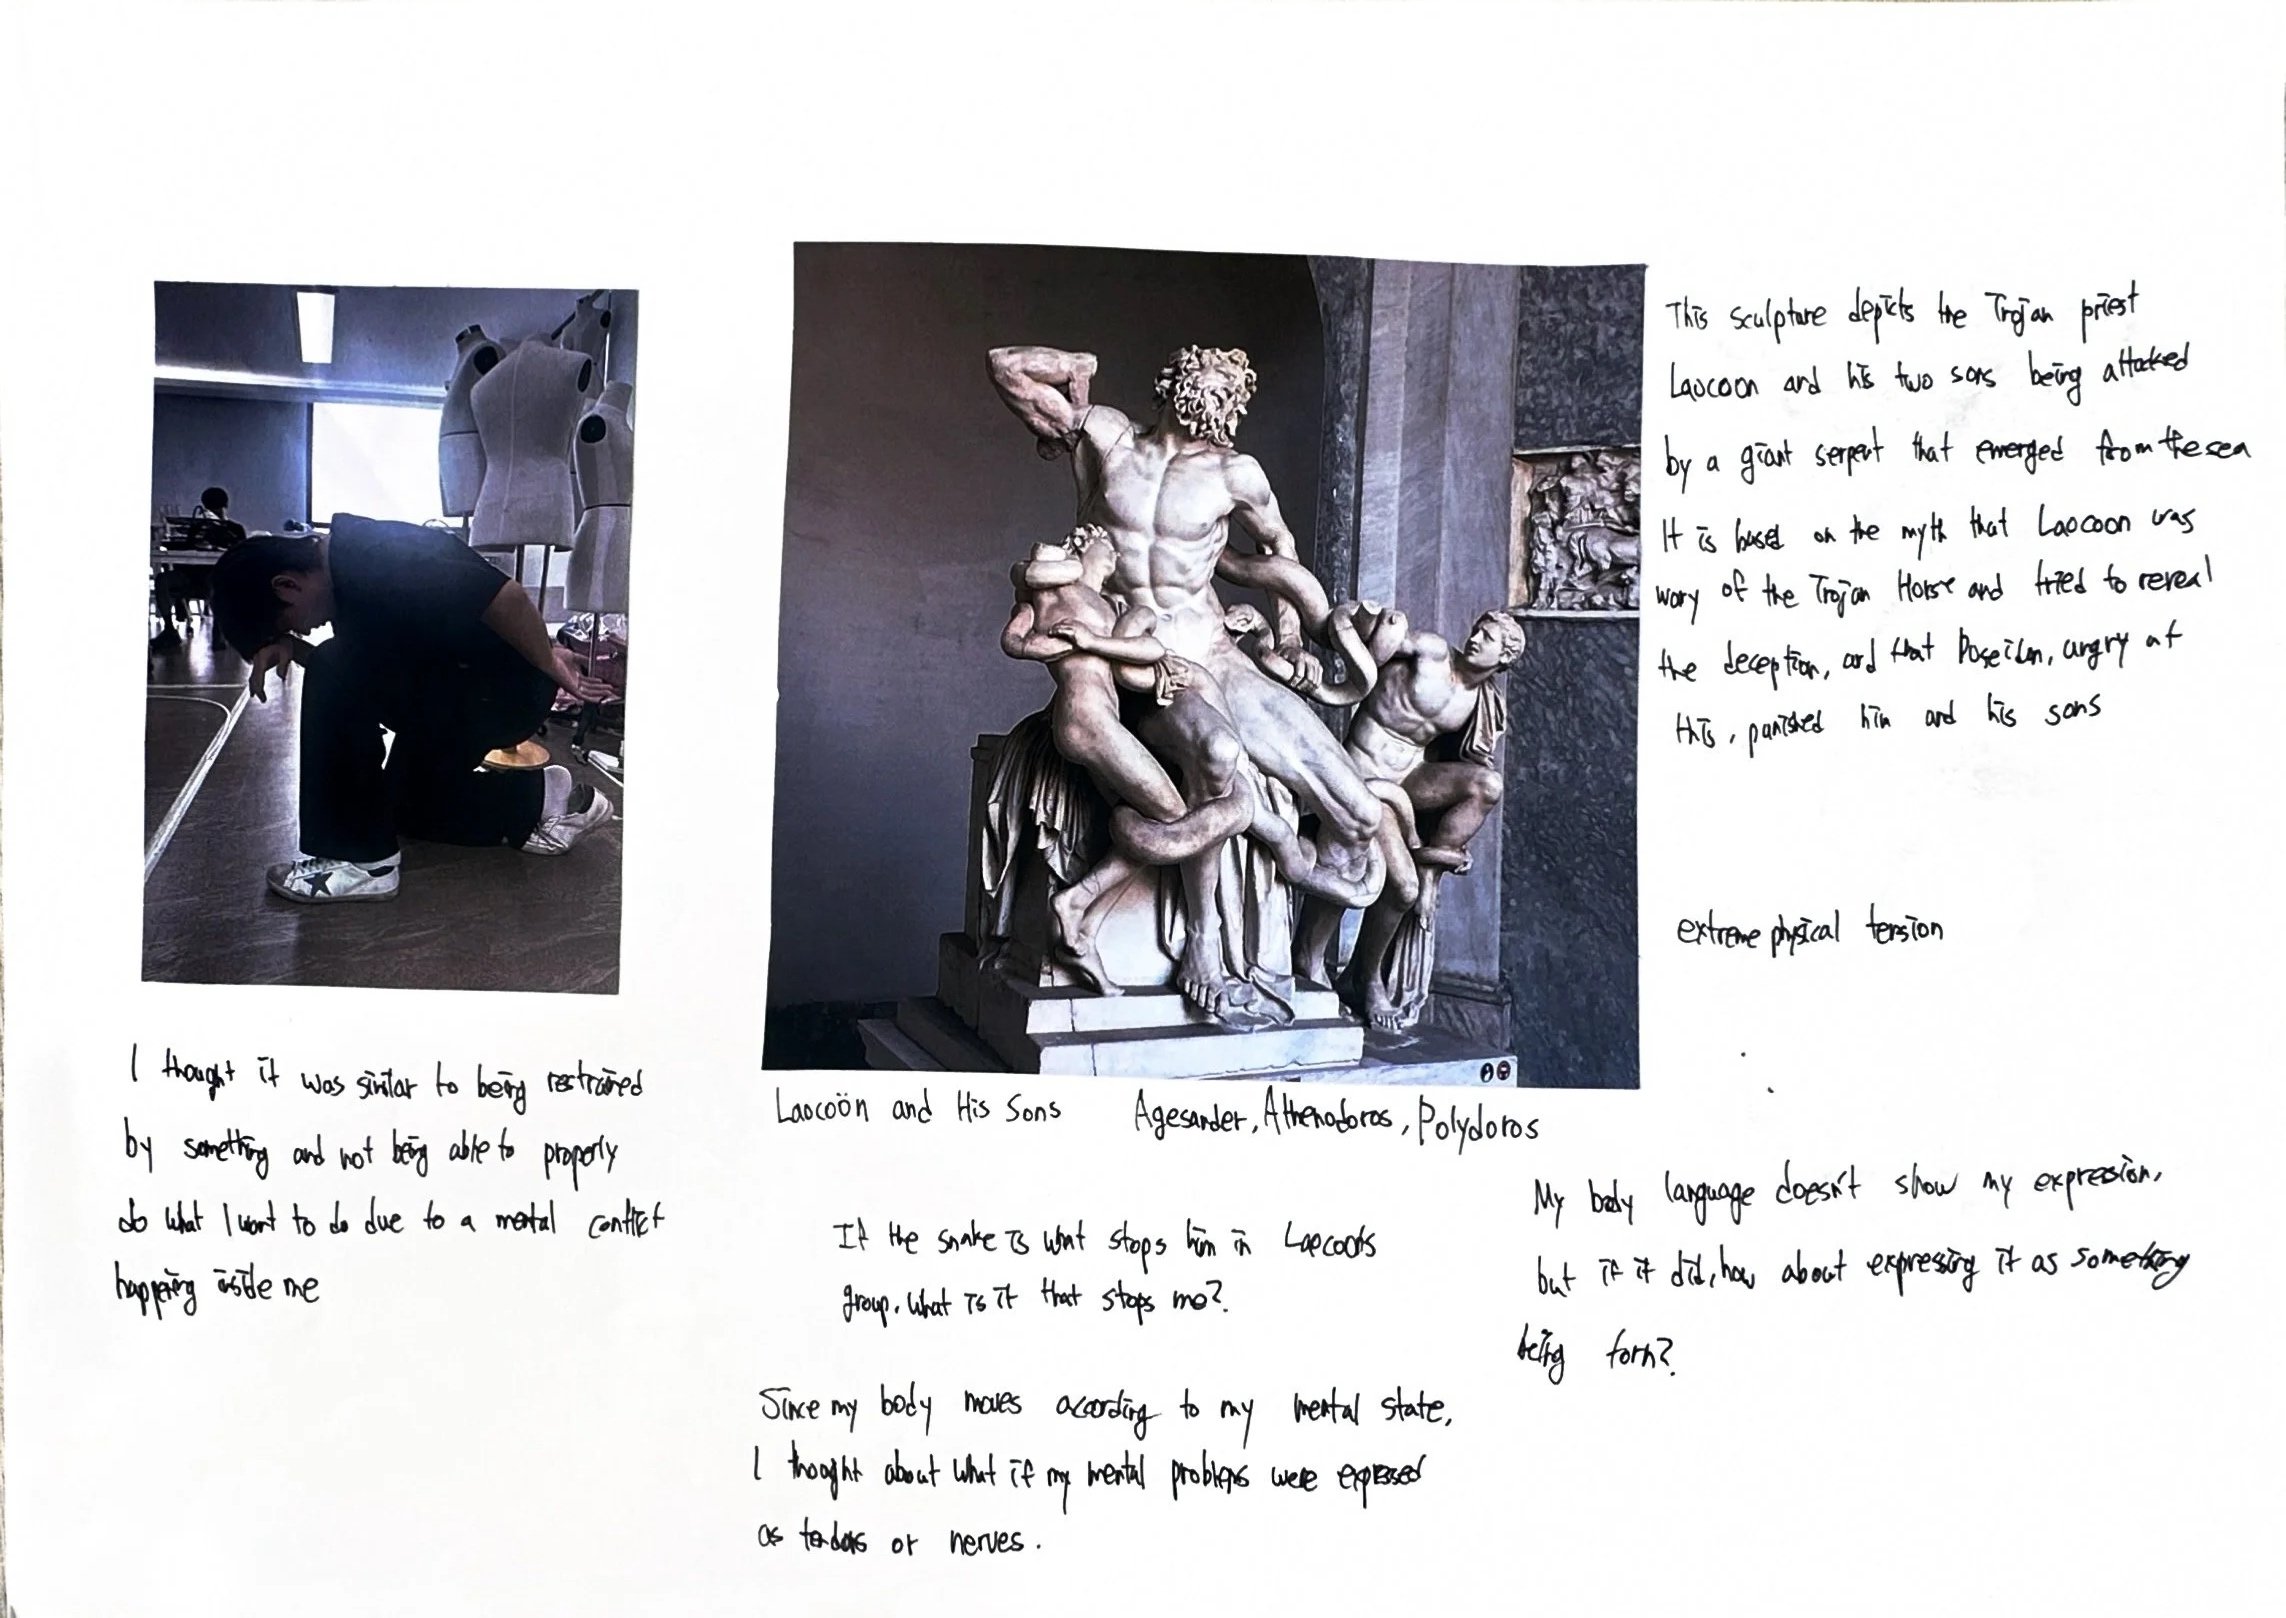 This sculpture depicts the Trojan priest
Laocoon and his two sons being attacked
by a giant serpent that emerged from the sea
It is based on the myth that Laocoon was
wary of the Trojan Horse and tried to reveal
the deception, and that Poseidon, angry at
this, punished him and his sons
extreme physical tension
I thought it was similar to being restrained
by something and not being able to properly
do what I want to do due to a mental conflict
happening inside me
Laocoön and His Sons Agesander, Athenodoros, Polydoros
If the snake is what stops him in Laocoon's
group, what is it that stops me?
Since my body moves according to my mental state,
I thought about what if my mental problems were expressed
as tendons or nerves.
My body language doesn't show my expression,
but if it did, how about expressing it as something
being torn?